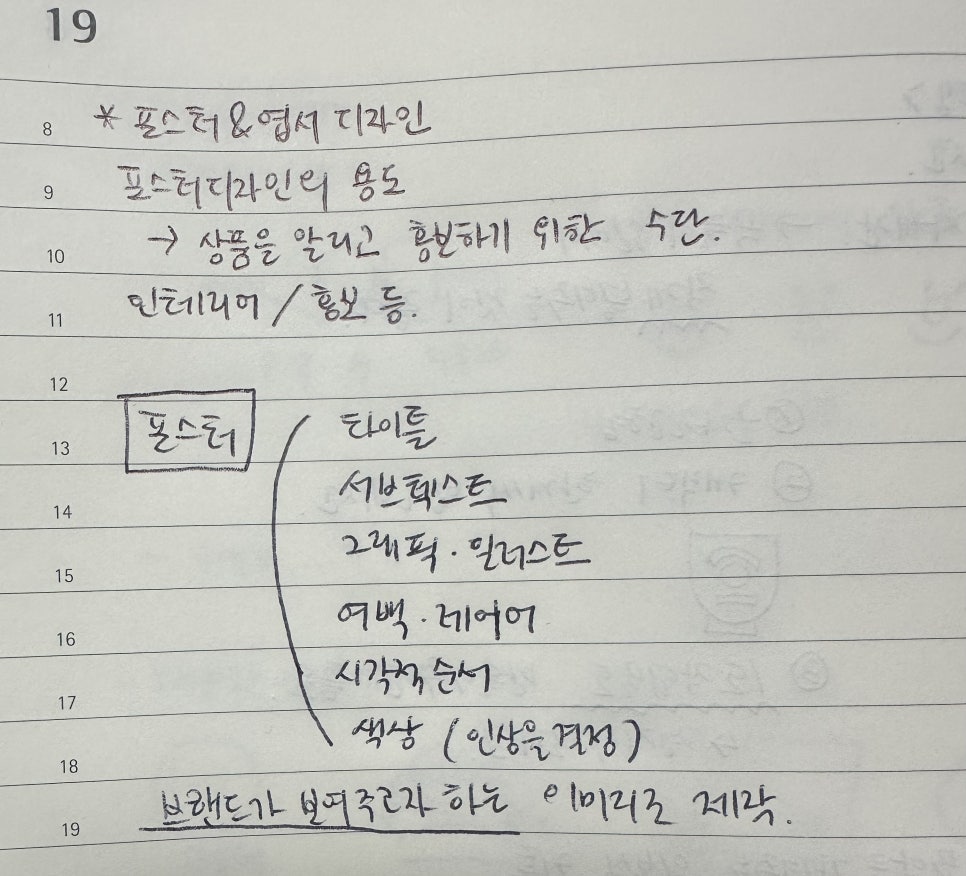 19
8 * 포스터 & 엽서 디자인
9 포스터디자인의 용도
10 → 상품을 알리고 홍보하기 위한 수단.
11 인테리어 / 홍보 등.
12
13 포스터 ( 타이틀
14 서브텍스트
15 그래픽 · 일러스트
16 여백 · 레이어
17 시각적 순서
18 색상 (인상을 결정)
19 브랜드가 보여주고자 하는 이미지로 제작.